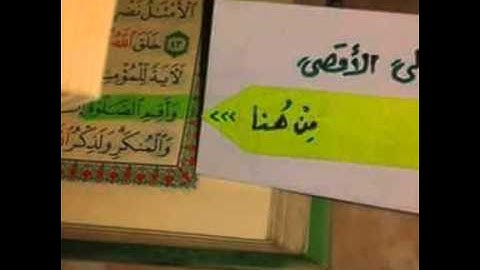 ٱلْأَمْثَٰلُ نَضْرِ
٤٣ خَلَقَ ٱللَّهُ
لَـَٔايَةً لِّلْمُؤْمِ
وَأَقِمِ ٱلصَّلَوٰةَ
وَٱلْمُنكَرِ وَلَذِكْرُ ٱ
الأقصى
<<< مِنْ هُنا